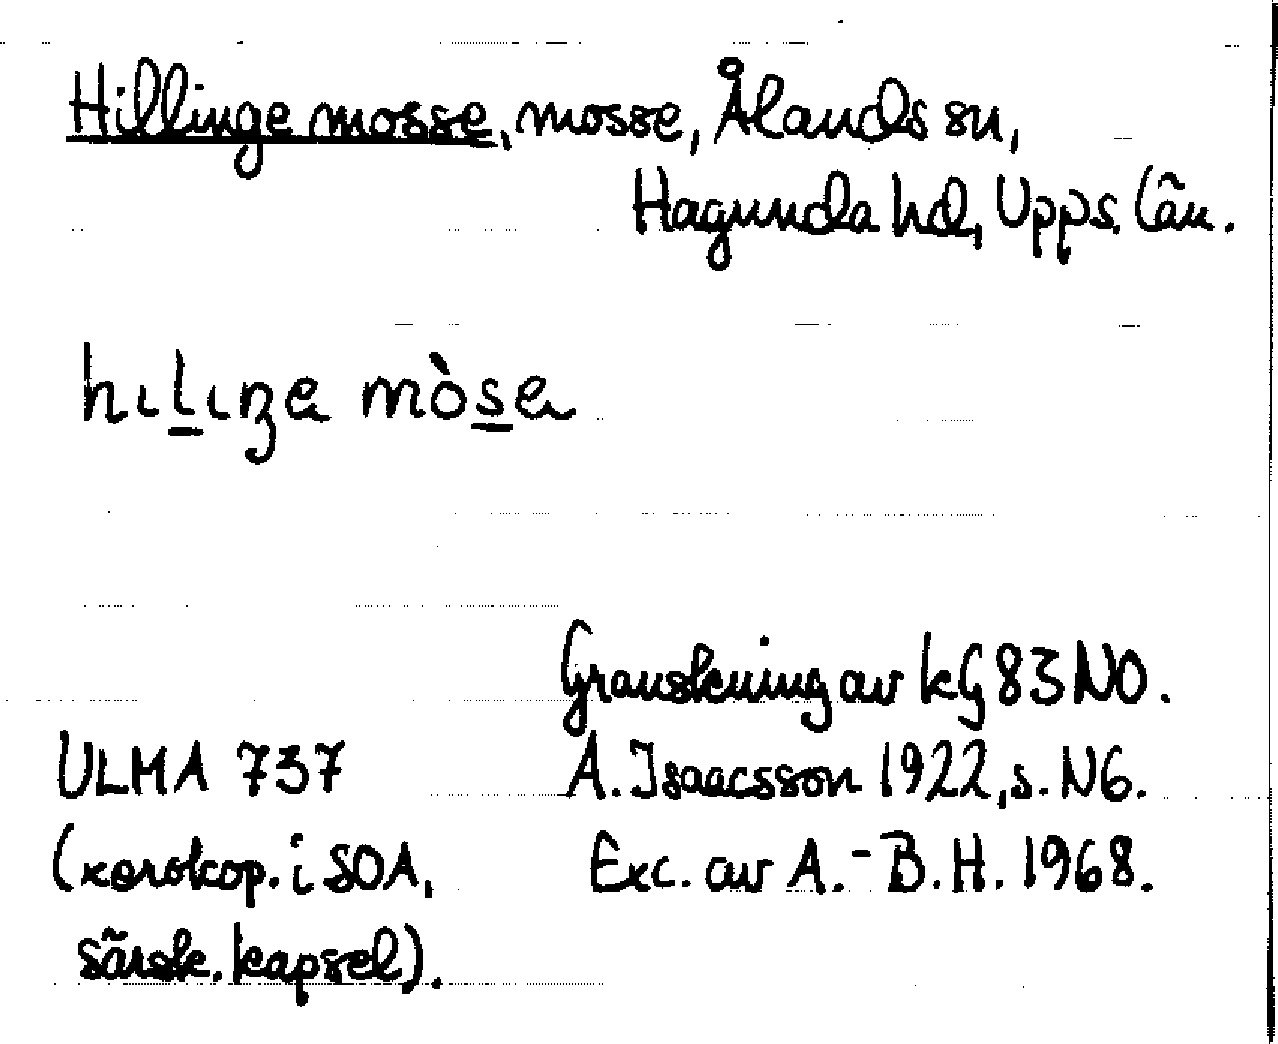 Hillinge mosse, mosse, Ålands sn,
Hagunda hd, Upps. län.
hɩlɩŋe mòse
Granskning av kG 83 NO.
ULMA 737 A. Isaacsson 1922, s. N6.
(xeroxkop. i SOA, Exc. av A.-B.H. 1968.
särsk. kapsel).